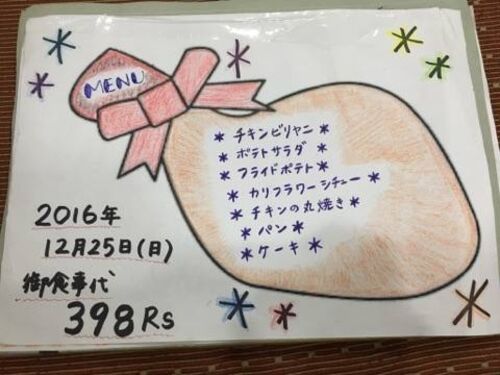 MENU
* チキンビリヤニ *
* ポテトサラダ *
* フライドポテト *
* カリフラワーシチュー *
* チキンの丸焼き *
* パン *
* ケーキ *
2016年
12月25日(日)
御食事代
398Rs